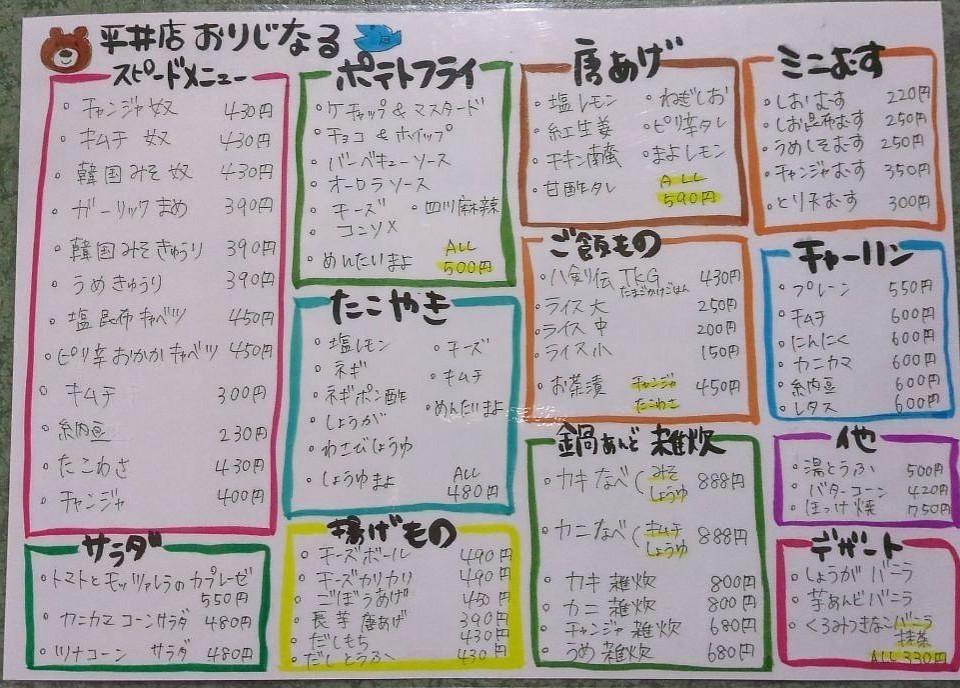 平井店 おりじなる
スピードメニュー
・チャンジャ奴 430円
・キムチ 奴 430円
・韓国みそ奴 430円
・ガーリックまめ 390円
・韓国みそきゅうり 390円
・うめきゅうり 390円
・塩昆布キャベツ 450円
・ピリ辛おかかキャベツ 450円
・キムチ 300円
・納豆 230円
・たこわさ 430円
・チャンジャ 400円
サラダ
・トマトとモッツァレラのカプレーゼ
550円
・カニカマコーンサラダ 480円
・ツナコーン サラダ 480円
ポテトフライ
・ケチャップ&マスタード
・チョコ&ホイップ
・バーベキューソース
・オーロラソース
・チーズ ・四川麻辣
・コンソメ
・めんたいまよ ALL
500円
たこやき
・塩レモン ・チーズ
・ネギ ・キムチ
・ネギポン酢 ・めんたいまよ
・しょうが
・わさびじょうゆ
・しょうゆまよ ALL
480円
揚げもの
・チーズボール 490円
・チーズカリカリ 490円
・ごぼうあげ 450円
・長芋唐あげ 390円
・だしもち 430円
・だしとうふ 430円
唐あげ
・塩レモン ・ねぎしお
・紅生姜 ・ピリ辛タレ
・チキン南蛮 ・まよレモン
・甘酢タレ ALL
590円
ご飯もの
・八剣伝TKG 430円
たまごかけごはん
・ライス大 250円
・ライス中 200円
・ライス小 150円
・お茶漬 チャンジャ 450円
たこわさ
鍋あんど雑炊
・カキなべ(みそ 888円
しょうゆ
・カニなべ(キムチ 888円
しょうゆ
・カキ雑炊 800円
・カニ雑炊 800円
・チャンジャ雑炊 680円
・うめ雑炊 680円
ミニむす
・しおむす 220円
・しお昆布むす 250円
・うめしそむす 250円
・チャンジャむす 350円
・とり天むす 300円
チャーハン
・プレーン 550円
・キムチ 600円
・にんにく 600円
・カニカマ 600円
・納豆 600円
・レタス 600円
他
・湯とうふ 500円
・バターコーン 420円
・ほっけ焼 750円
デザート
・しょうがバニラ
・芋あんどバニラ
・くるみつきなこバニラ
抹茶
ALL 330円